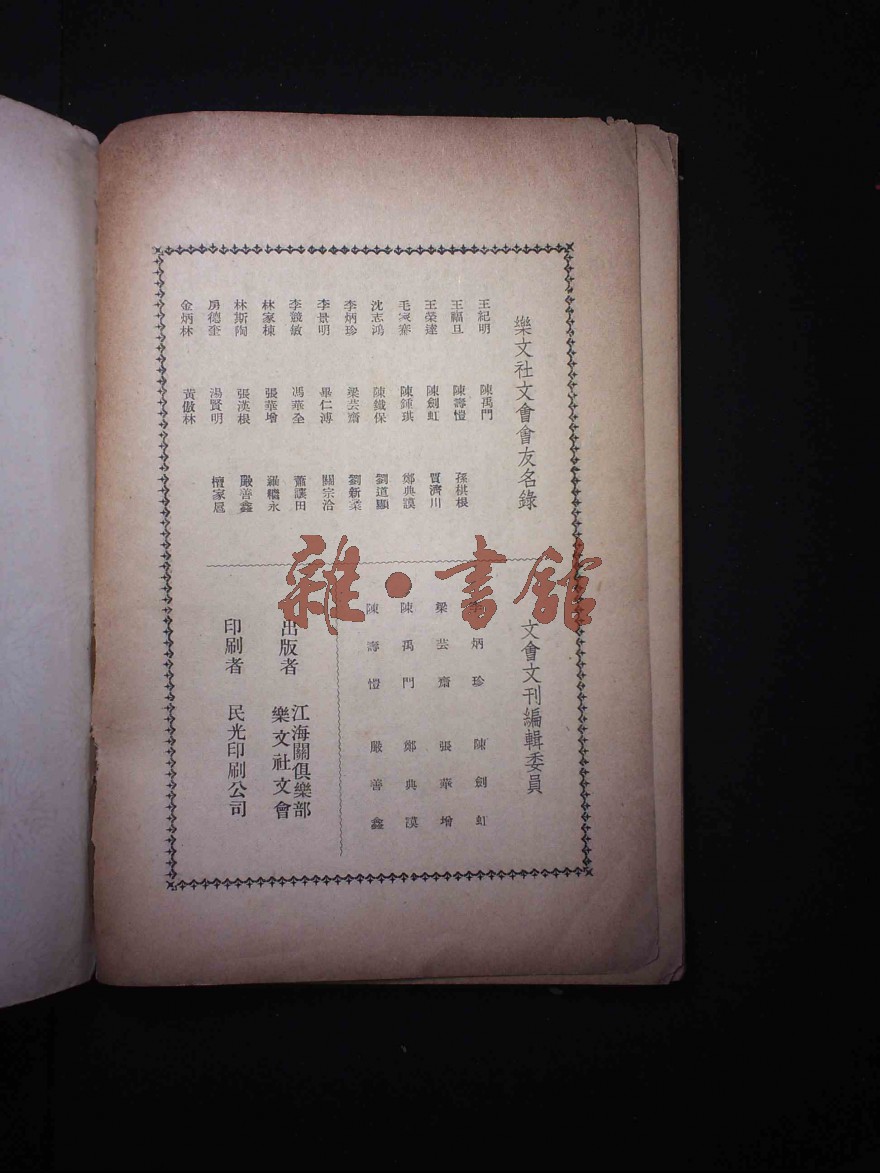 樂文社文會會友名錄
王紀明 陳禹門
王福旦 陳壽愷 孫棋根
王榮達 陳劍虹 賀濟川
陳鍾琪 鄭典謨
沈志鴻 陳鐵保 劉道顯
李炳珍 梁芸齋 劉新柔
李景明 畢仁溥 關宗治
李競敏 馮華全 蕭謨田
林家棟 張華增 羅繼永
林斯陶 張漢根 嚴善鑫
房德奎 湯賢明
金炳林 黃傲林
文會文刊編輯委員
李炳珍 陳劍虹
梁芸齋 張華增
陳禹門 鄭典謨
陳壽愷 嚴善鑫
出版者 江海關俱樂部
樂文社文會
印刷者 民光印刷公司
雜·書館